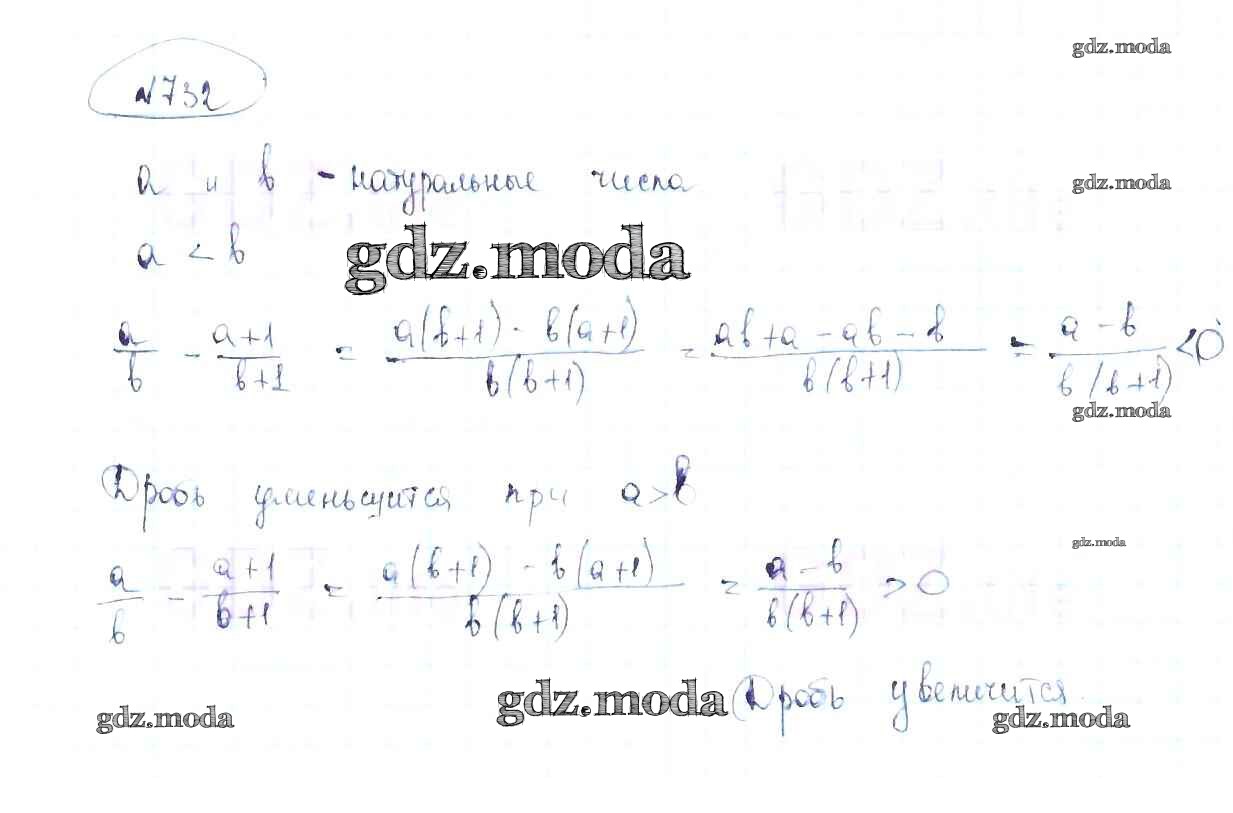 gdz.moda
№732
a и b - натуральные числа
gdz.moda
a < b
gdz.moda
a/b - (a+1)/(b+1) = (a(b+1) - b(a+1))/(b(b+1)) = (ab+a-ab-b)/(b(b+1)) = (a-b)/(b(b+1)) < 0
gdz.moda
Дробь уменьшится при a>b
gdz.moda
a/b - (a+1)/(b+1) = (a(b+1) - b(a+1))/(b(b+1)) = (a-b)/(b(b+1)) > 0
gdz.moda Дробь увеличится.
gdz.moda gdz.moda